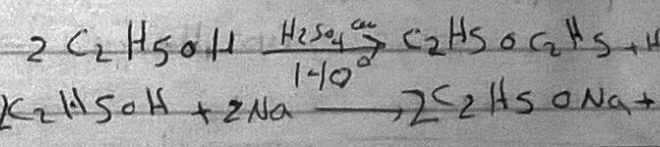 2 C2H5OH H2SO4 140° C2H5OC2H5 + H
2C2H5OH + 2Na → 2C2H5ONa +